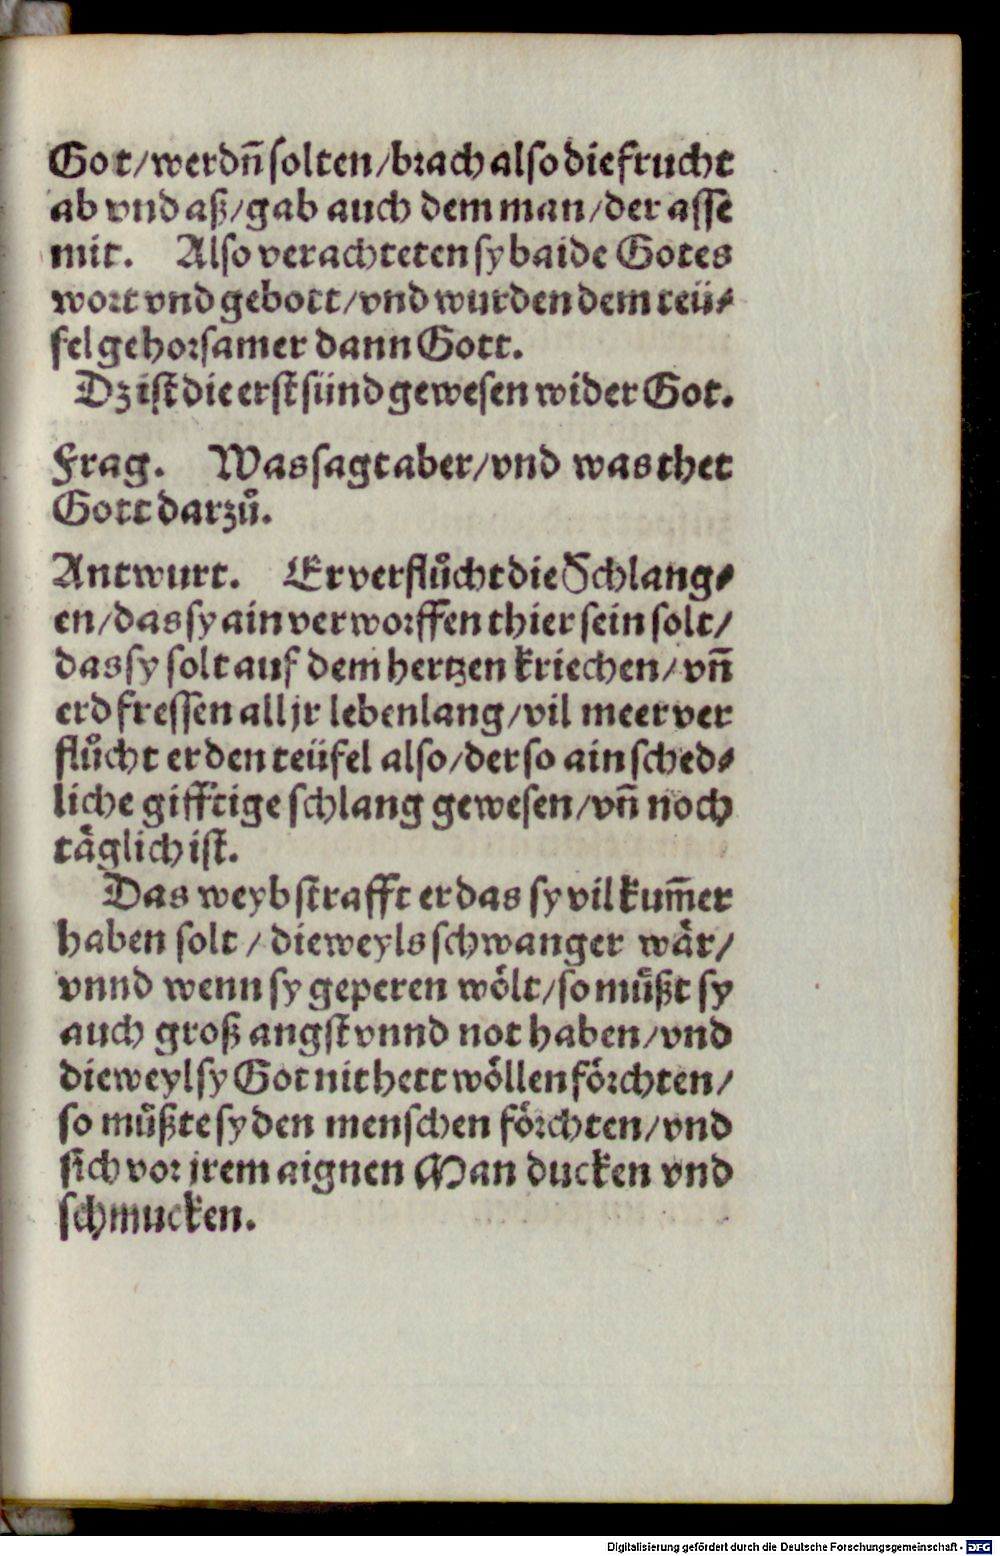 Got/werdn̄ solten/brach also die frucht
ab vnd aß/gab auch dem man/der asse
mit. Also verachteten sy baide Gotes
wort vnd gebott/vnd wurden dem teü⸗
fel gehorsamer dann Gott.
Dz ist die erst sünd gewesen wider Got.
Frag. Was sagt aber/vnd was thet
Gott darzů.
Antwurt. Er verflůcht die Schlang⸗
en/das sy ain verworffen thier sein solt/
das sy solt auf dem hertzen kriechen/vn̄
erd fressen all jr lebenlang/vil meer ver
flůcht er den teüfel also/der so ain sched⸗
liche gifftige schlang gewesen/vn̄ noch
täglich ist.
Das weyb strafft er das sy vil kum̄er
haben solt/dieweyls schwanger wär/
vnnd wenn sy geperen wölt/so můßt sy
auch groß angst vnnd not haben/vnd
dieweyl sy Got nit hett wöllen förchten/
so můßte sy den menschen förchten/vnd
sich vor jrem aignen Man ducken vnd
schmucken.
Digitalisierung gefördert durch die Deutsche Forschungsgemeinschaft - DFG